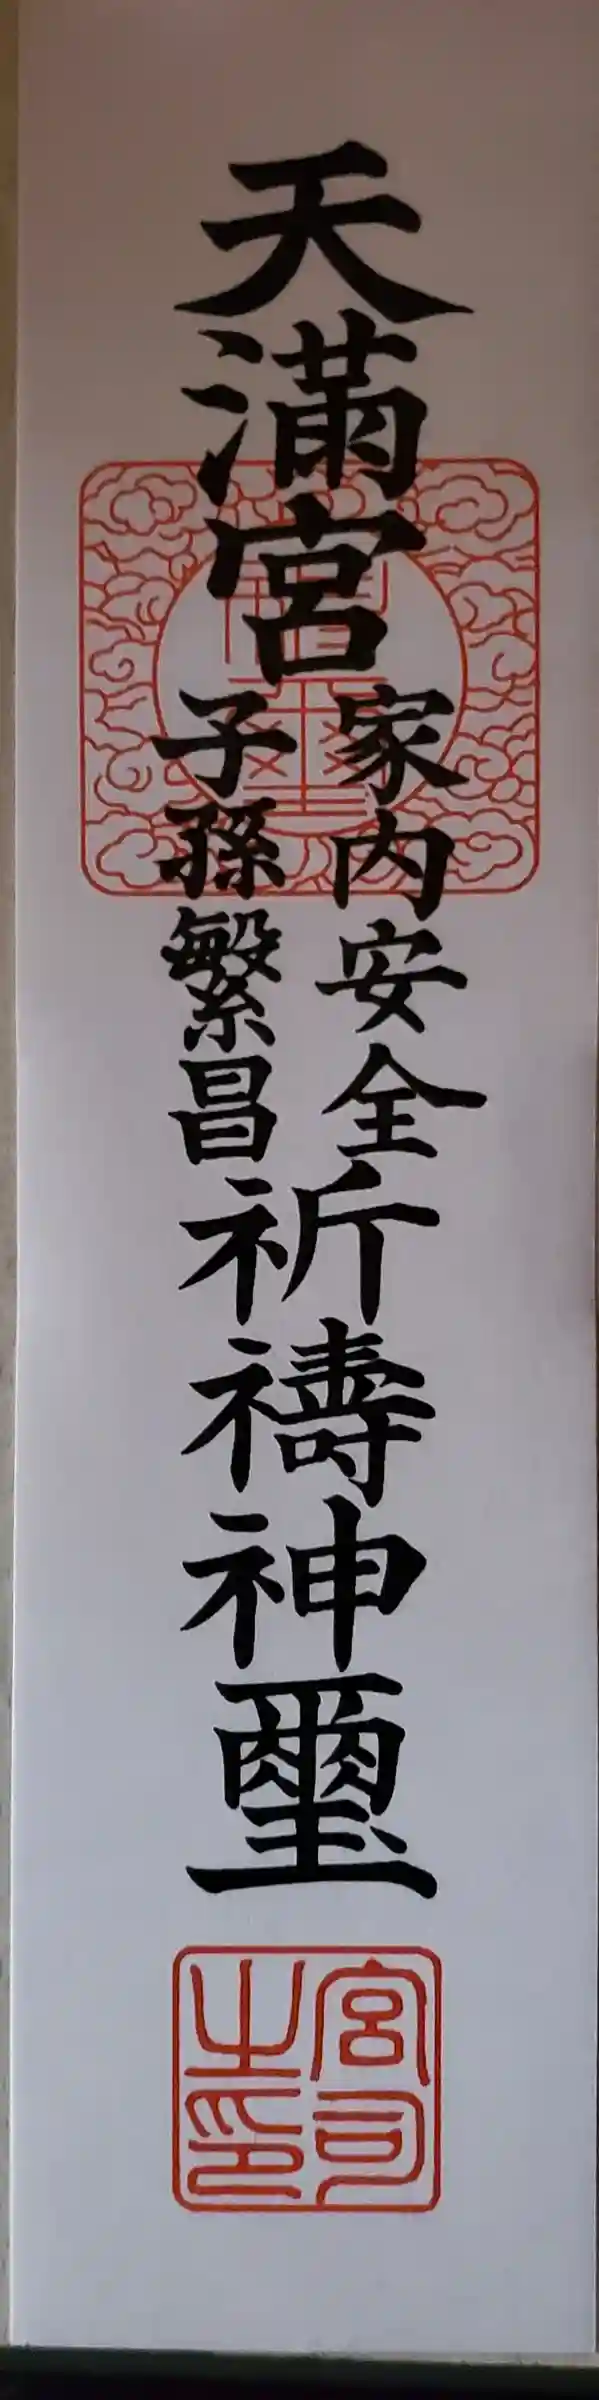 天滿宮
家内安全
子孫繁昌
祈禱神璽
宮司
之印